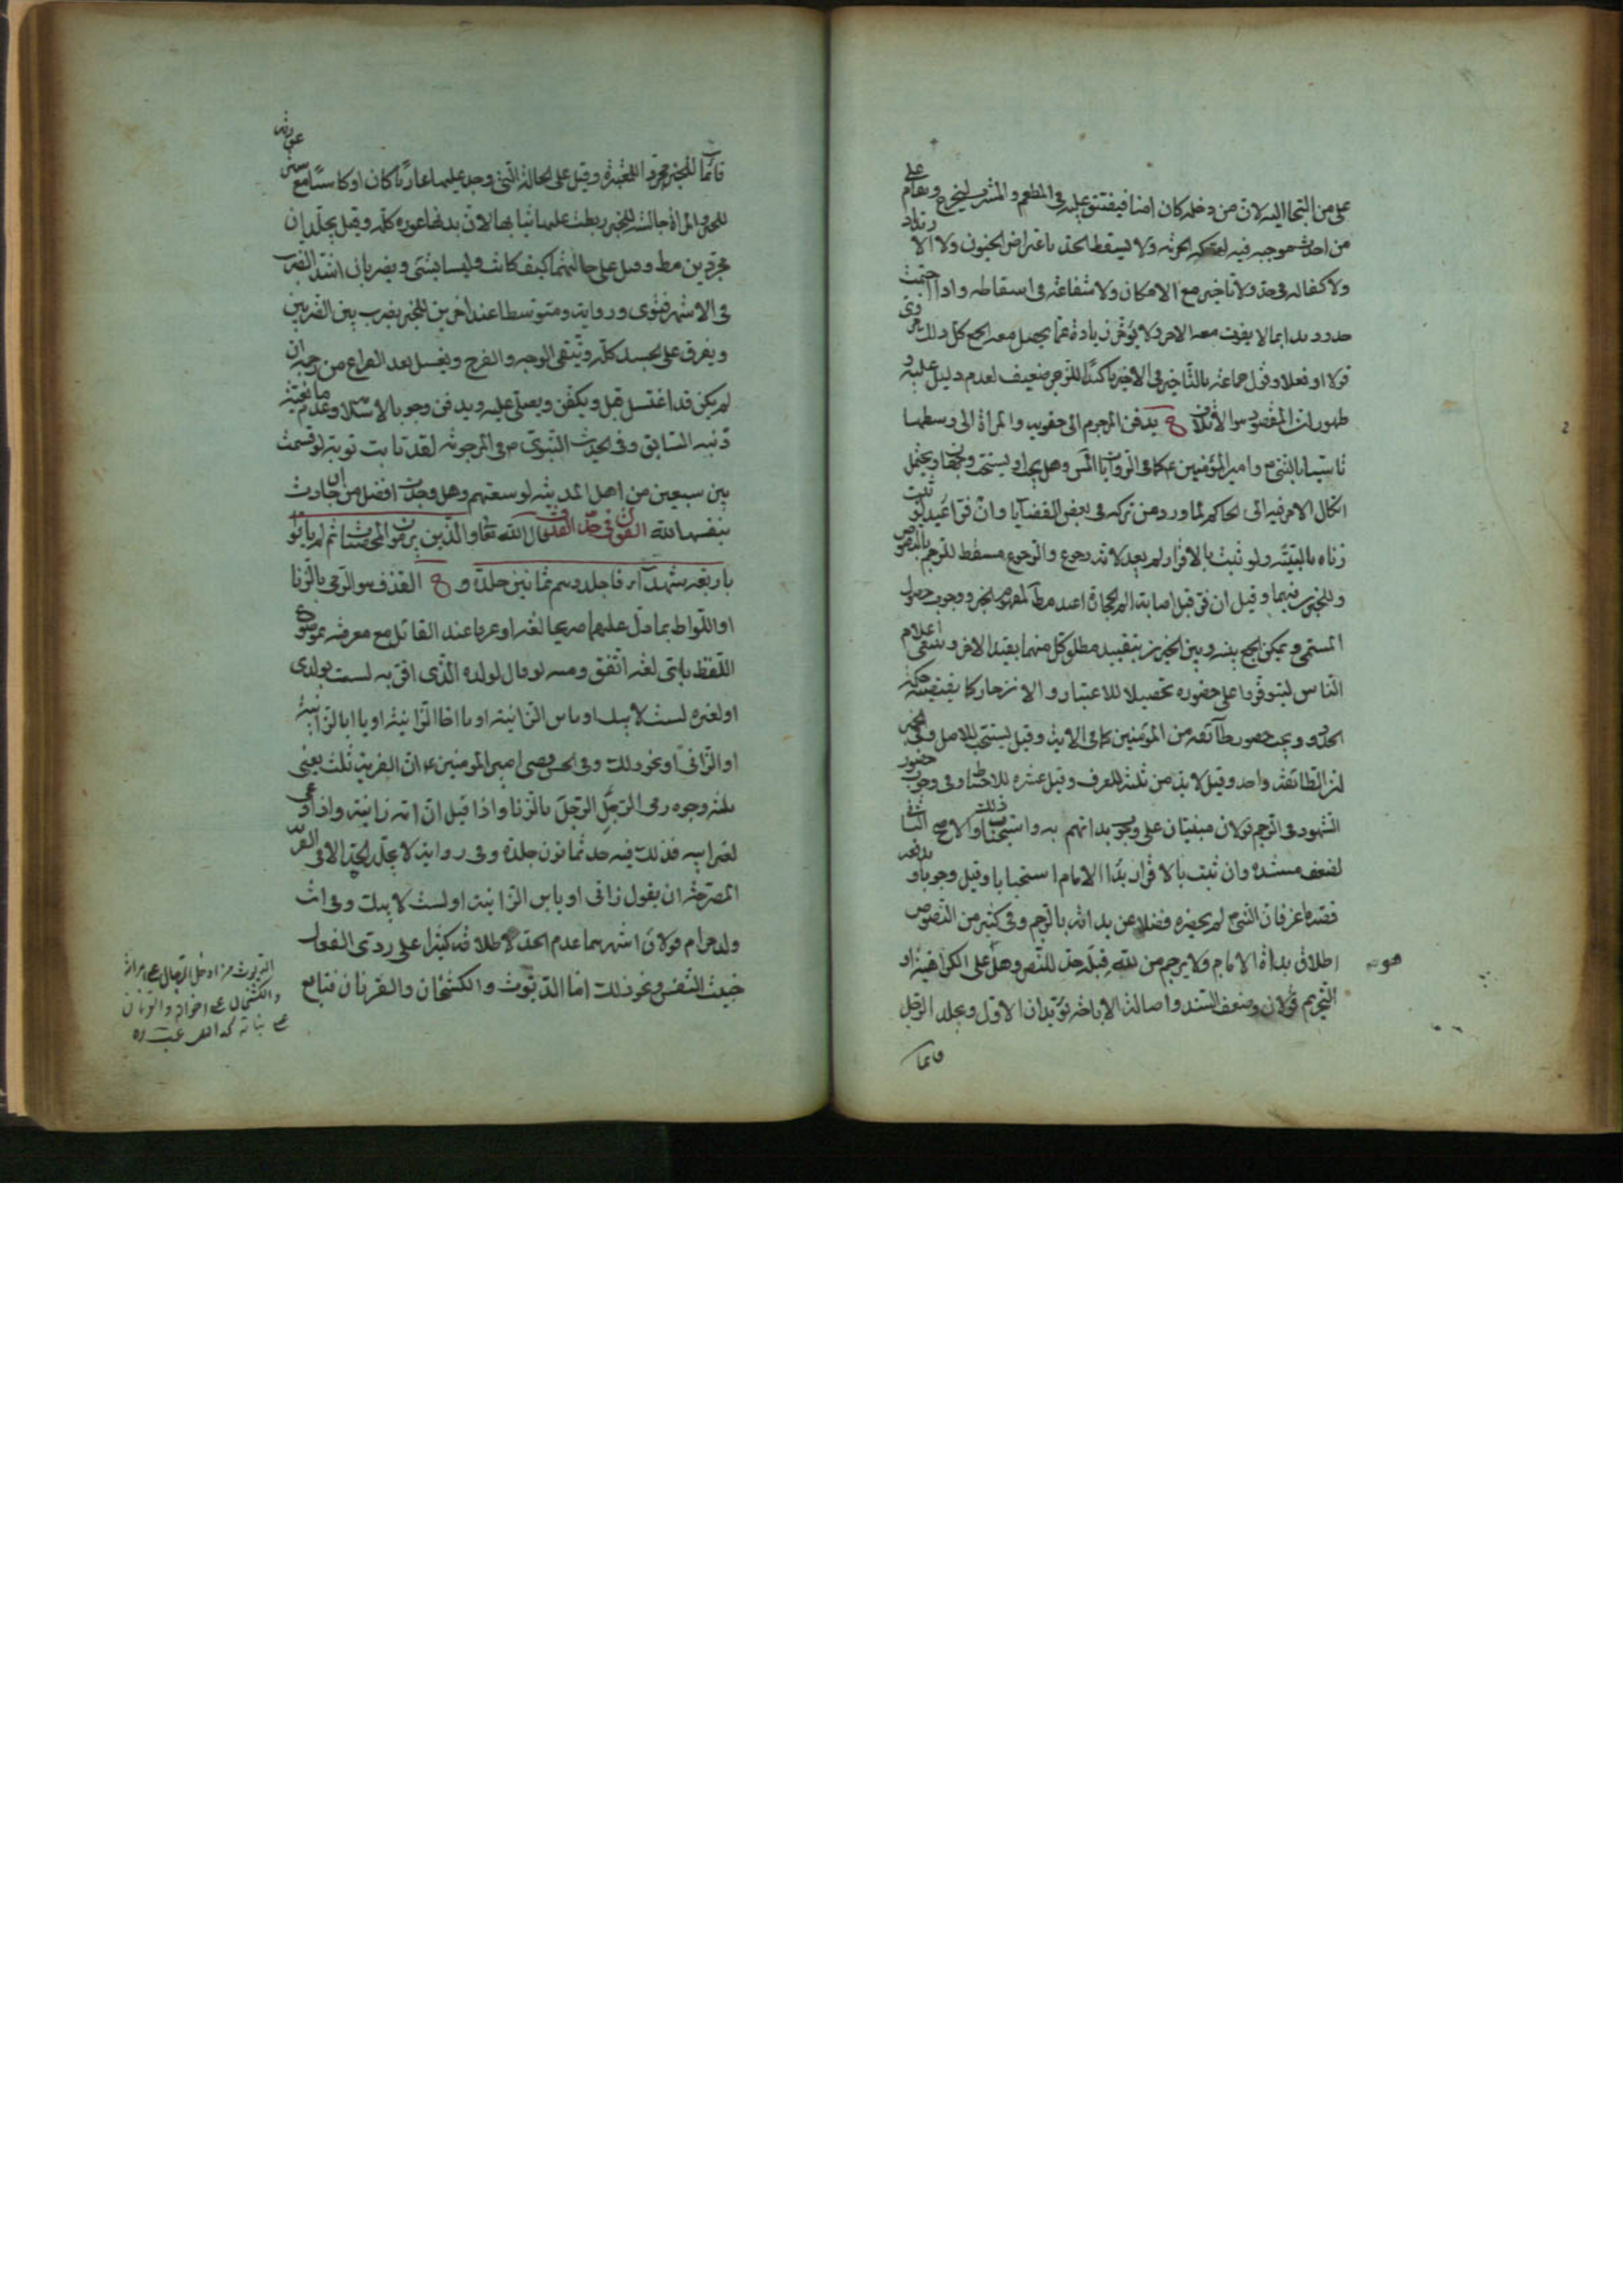 على من التجا اليه لان من دخله كان امنا فيضيق عليه في المطعم والمشرب ليخرج ويقام على
من احدث موجبه فيه لهتكه الحرمة ولا يسقط الحد باعتراض الجنون ولا الارتداد
ولا كفالة في حد ولا تاخير مع الامكان ولا شفاعة في اسقاطه واذا اجتمعت
حدود بدا بما لا يفوت معه الاخر ولا يؤخر زيادة عما يحصل معه الجمع كل ذلك
قولا او فعلا وقول جماعة بالتاخير في الاخير تاكيدا للزجر ضعيف لعدم دليل عليه و
ظهور ان المقصود هو الاتلاف يدفن المرجوم الى حقويه والمراة الى وسطها
تاسيا بالنبي ص وامير المؤمنين ع كما في الروايات وهل يجب او يستحب وجهان ويحتمل
ايكال الامر فيه الى الحاكم لما ورد من تركه في بعض القضايا وان فر اعيد لو ثبت
زناه بالبينة ولو ثبت بالاقرار لم يعد لانه رجوع والرجوع مسقط للرجم بالنصوص
وللخبرين فيهما وقيل ان فر قبل اصابة الحجارة اعيد مط لمفهوم الخبر ووجوب حصول
المسمى ويمكن الجمع بينه وبين الخبرين بتقييد مطلق كل منهما بقيد الاخر وينبغي اعلام
الناس ليتوفروا على حضوره تحصيلا للاعتبار والانزجار كما يقتضيه حكمة
الحدود ويجب حضور طائفة من المؤمنين كما في الاية وقيل يستحب للاصل وفي الخبر
ان الطائفة واحد وقيل لا بد من ثلثة للعرف وقيل عشرة للاحتياط وفي وجوب حضور
الشهود في الرجم قولان مبنيان على وجوب بداتهم به واستحباب ذلك والاصح الثاني
لضعف مستنده وان ثبت بالاقرار بدا الامام استحبابا وقيل وجوبا و
قصة ماعز فان النبي ص لم يحضره فضلا عن بداته بالرجم وفي كثير من النصوص
اطلاق بداة الامام ولا يرجم من لله قبله حد للنص وهل هو على الكراهية او
التحريم قولان وضعف السند واصالة الاباحة يؤيدان الاول ويجلد الرجل
قائما
قائما للخبر مجردا وقيل على الحالة التي وجد عليها عاريا كان او كاسيا مع ستر عورته
للخبر والمراة جالسة للخبر ربطت عليها ثيابها لان بدنها عورة كله وقيل يجلدان
مجردين مط وقيل على حالتهما كيف كانت وليسا بشئ ويضربان اشد الضرب
في الاشهر فتوى ورواية ومتوسطا عند اخرين للخبر يضرب بين الضربين
ويفرق على الجسد كله ويتقى الوجه والفرج ويغسل بعد الفراغ من رجمه ان
لم يكن قد اغتسل قبل ويكفن ويصلى عليه ويدفن وجوبا لاسلامه وعدم مانعية
ذنبه السابق وفي الحديث النبوي ص في المرجومة لقد تابت توبة لو قسمت
بين سبعين من اهل المدينة لوسعتهم وهل وجدت افضل من ان جادت
بنفسها لله القول في حد القذف قال الله تعالى والذين يرمون المحصنات ثم لم ياتوا
باربعة شهداء فاجلدوهم ثمانين جلدة و القذف هو الرمي بالزنا
او اللواط بما دل عليهما صريحا لغة او عرفا عند القائل مع معرفته بموضوع
اللفظ باي لغة اتفق ومنه لو قال لولده الذي اقر به لست بولدي
او لغيره لست لابيك او يا بن الزانية او يا اخا الزانية او يا ابا الزانية
او الزاني او نحو ذلك وفي الحسن قضى امير المؤمنين ع ان الفرية ثلث يعني
ثلثة وجوه رمي الرجل الرجل بالزنا واذا قيل ان امه زانية واذا دعى
لغير ابيه فذلك فيه حد ثمانون جلدة وفي رواية لا يجلد الحد الا في الفرية
المصرحة ان يقول زاني او يا بن الزانية او لست لابيك وفي انت
ولد حرام قولان اشهرهما عدم الحد لاطلاقه كثيرا على ردي الفعل
خبيث النفس ونحو ذلك اما الديوث والكشخان والقرنان فتابع
الديوث من ادخل الرجال على امراته
والكشخان على اخواته والقرنان
على بناته